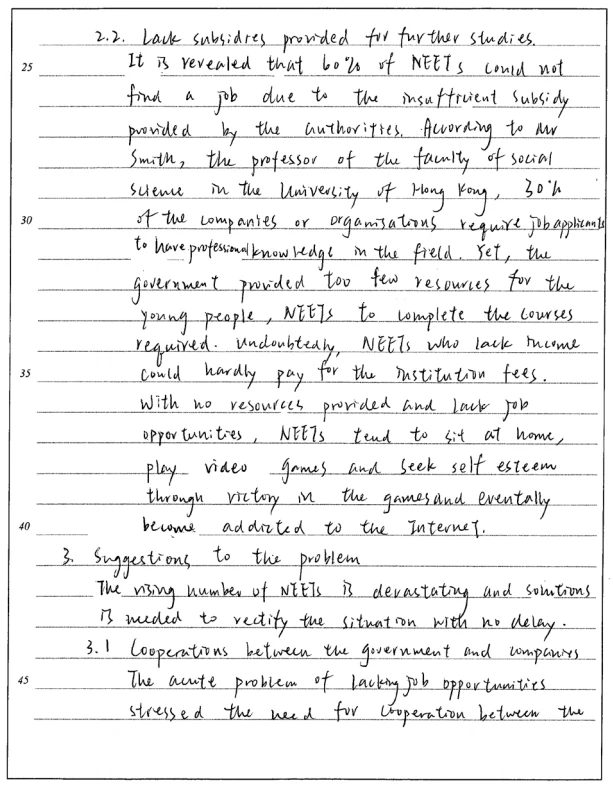 2.2. Lack subsidies provided for further studies.
25 It is revealed that 60% of NEETs could not
find a job due to the insufficient subsidy
provided by the authorities. According to Mr
Smith, the professor of the faculty of social
science in the University of Hong Kong, 30%
30 of the companies or organisations require job applicants
to have professional knowledge in the field. Yet, the
government provided too few resources for the
young people, NEETs to complete the courses
required. Undoubtedly, NEETs who lack income
35 could hardly pay for the institution fees.
With no resources provided and lack job
opportunities, NEETs tend to sit at home,
play video games and seek self esteem
through victory in the games and eventally
40 become addicted to the Internet.
3. Suggestions to the problem
The rising number of NEETs is devastating and solutions
is needed to rectify the situation with no delay.
3.1 Cooperations between the government and companies
45 The acute problem of lacking job opportunities
stressed the need for cooperation between the